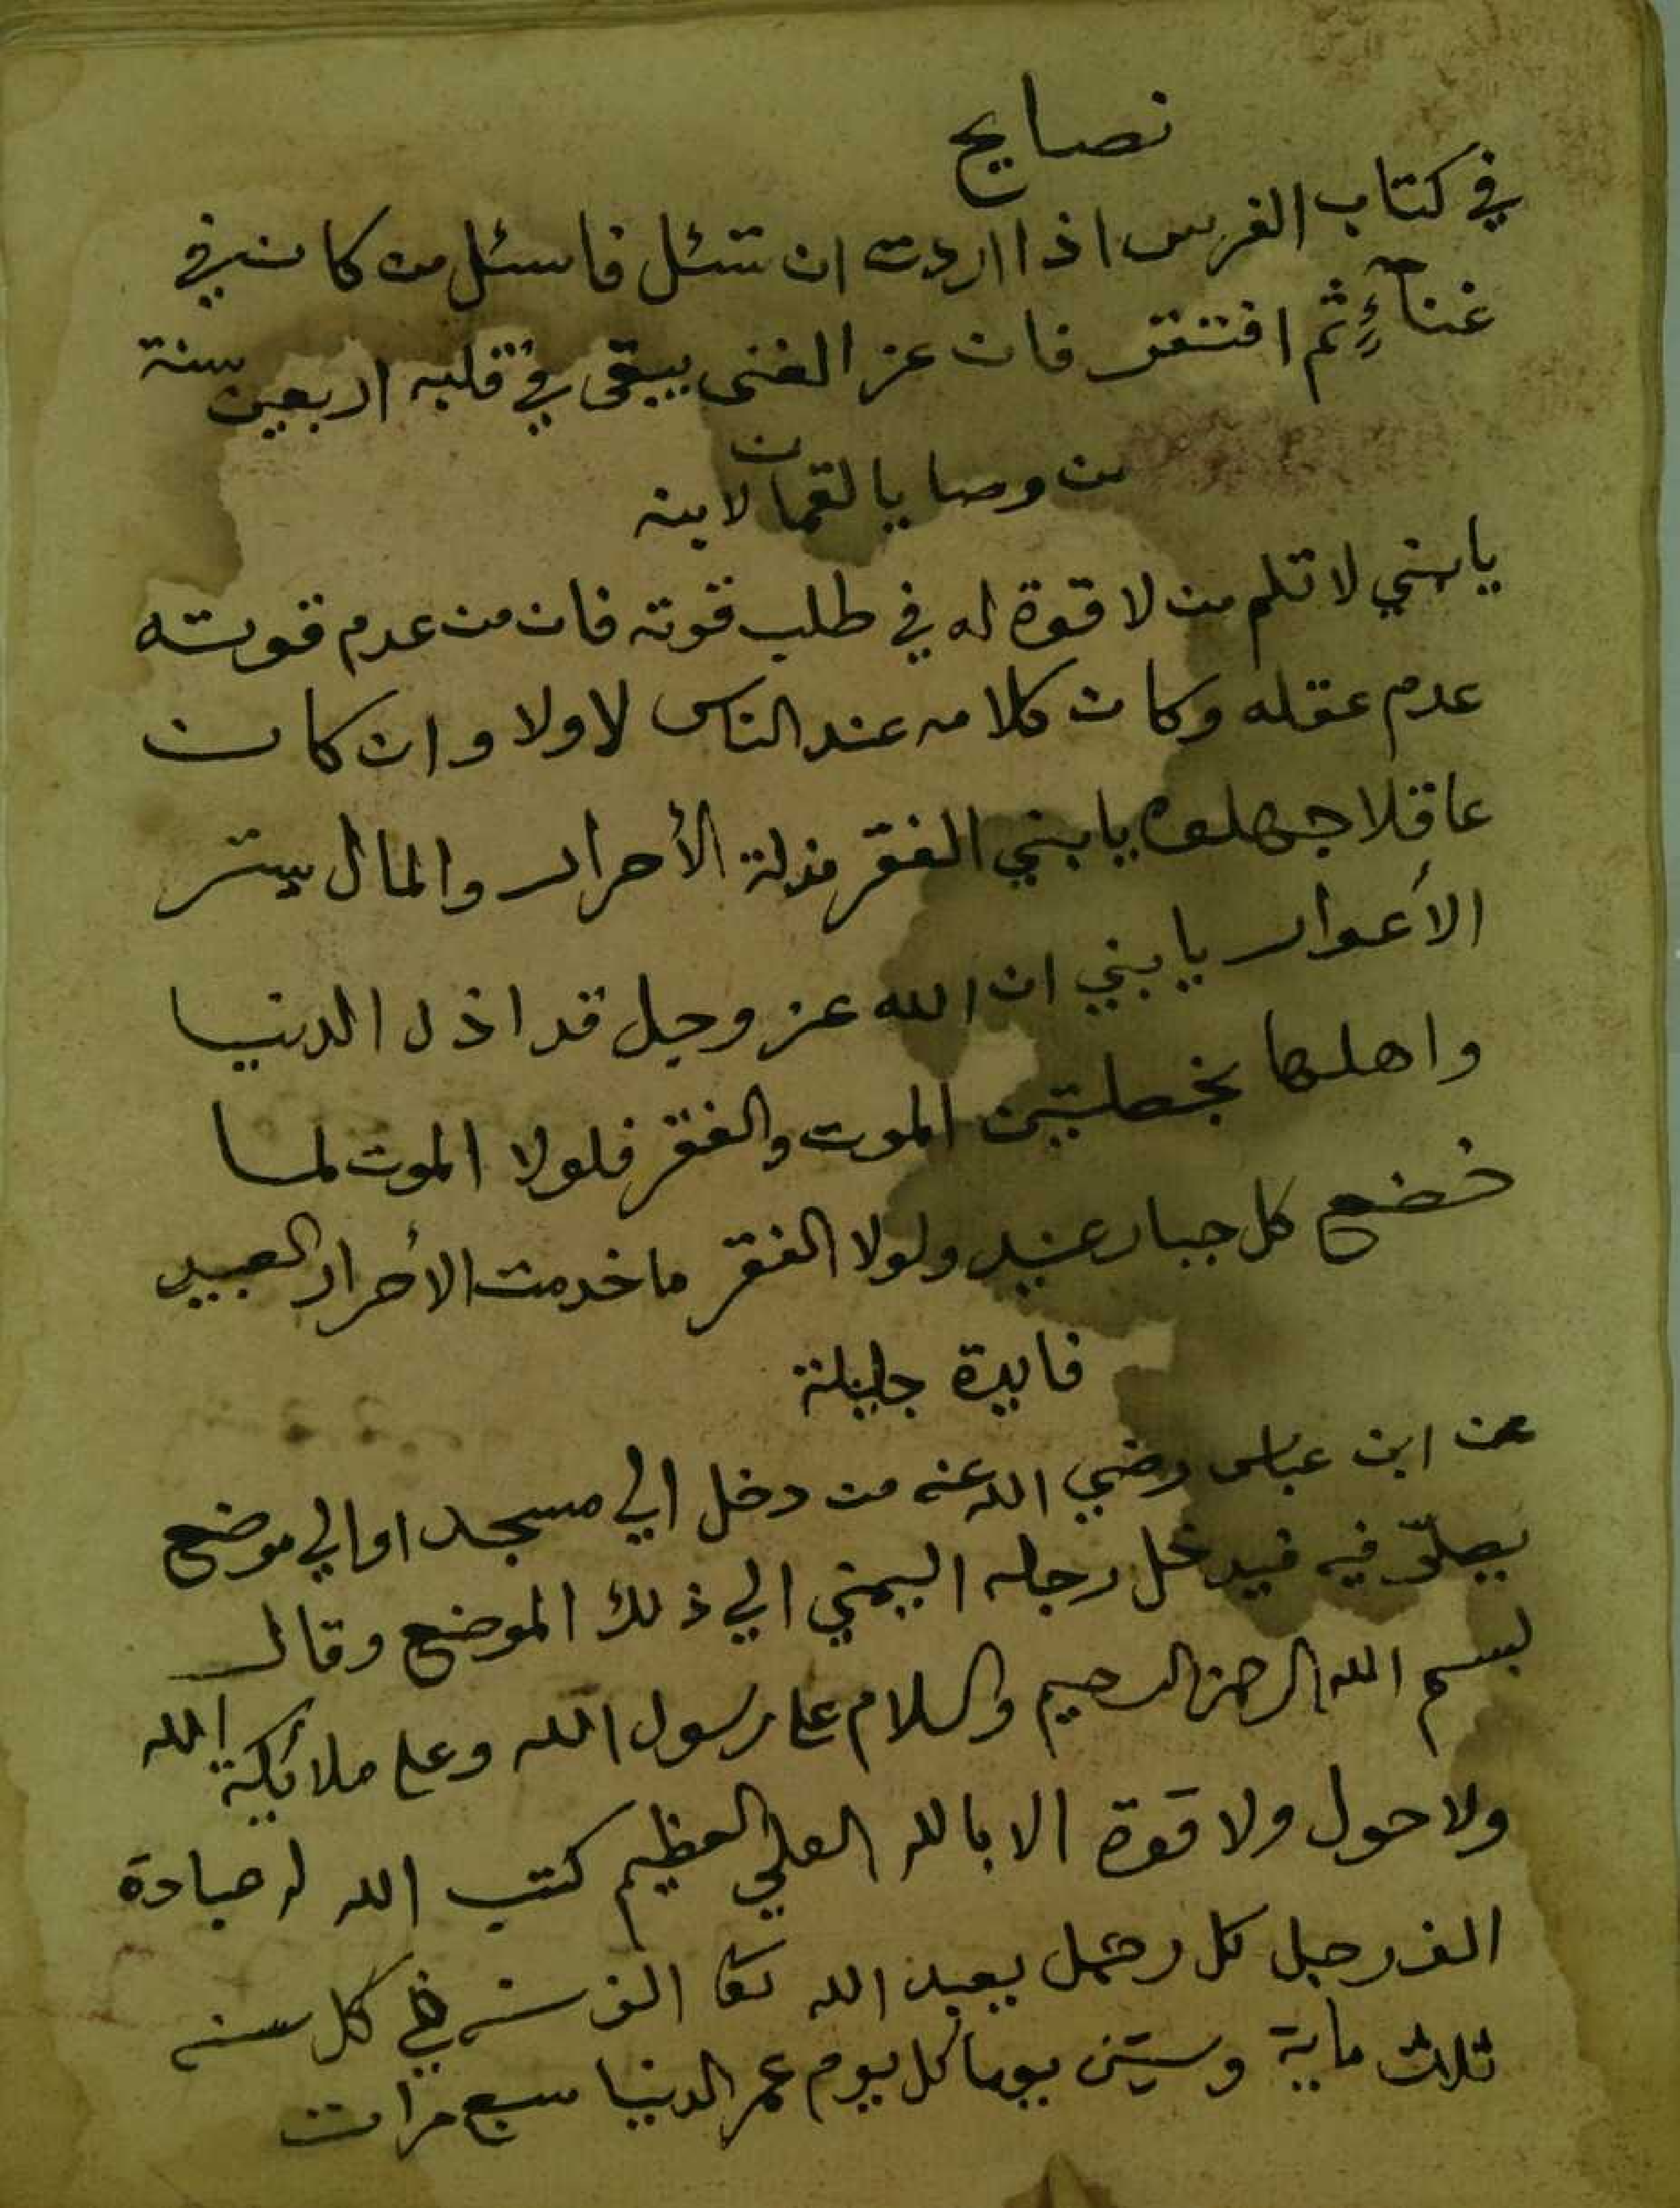 نصايح
في كتاب الفرس اذا اردت ان تسئل فاسئل من كان في
غناءٍ ثم افتقر فان عز الغنى يبقى في قلبه اربعين سنة
من وصايا لقمان لابنه
يابني لا تلم من لا قوة له في طلب قوته فان من عدم قوته
عدم عقله وكان كلامه عند الناس لا ولا وان كان
عاقلا جهلوه يابني الفقر مذلة الأحرار والمال يستر
الأعوار يابني ان الله عز وجل قد اذل الدنيا
واهلها بخصلتين الموت والفقر فلولا الموت لما
خضع كل جبار عنيد ولولا الفقر ما خدمت الأحرار العبيد
فايدة جليلة
عن ابن عباس رضي الله عنه من دخل الي مسجد او الي موضع
يصلّو فيه فيدخل رجله اليمني الي ذلك الموضع وقال
بسم الله الرحمن الرحيم والسلام علي رسول الله وعلي ملائكة الله
ولا حول ولا قوة الا بالله العلي العظيم كتب الله له عبادة
الف رجل كل رجل يعبد الله تعا الف سنه في كل سنه
ثلاث ماية وستين يوما كل يوم عمر الدنيا سبع مرات